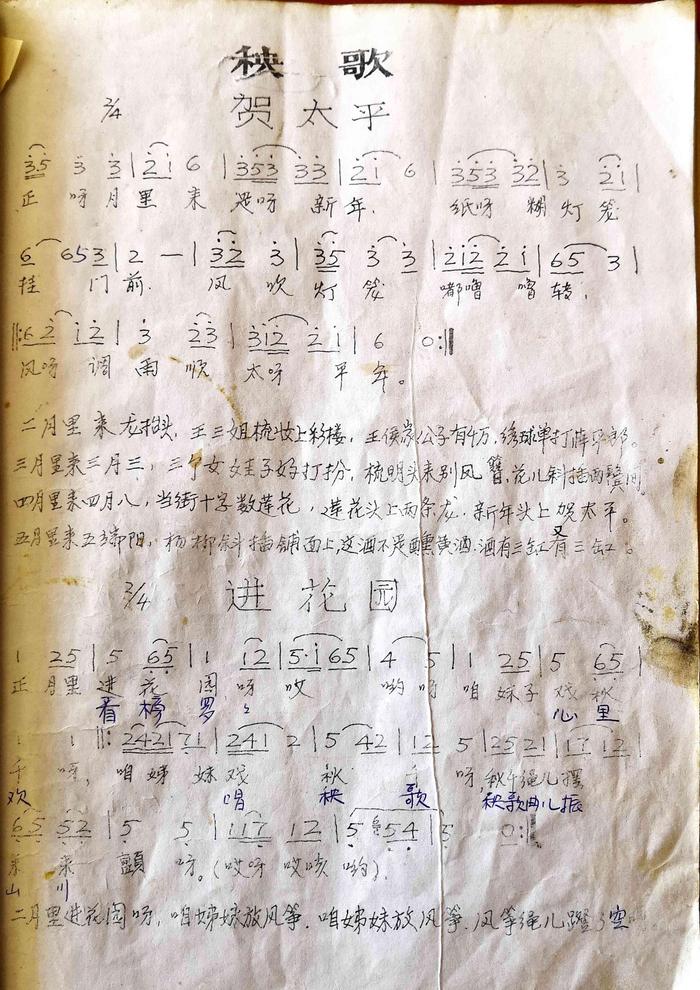 秧 歌
2/4 贺太平
35 3 3 | 2 1 6 | 353 33 | 2 1 6 | 353 32 | 3 2 1 |
正 呀 月 里 来 是呀 新 年. 纸呀 糊 灯 笼
6 653 | 2 — | 32 3 | 35 3 3 | 212 21 | 65 3 |
挂 门 前. 风 吹 灯 笼 嘟噜 噜 转.
‖: 62 12 | 3 23 | 312 21 | 6 0 :‖
风呀 调 雨 顺 太呀 平 年。
二月里来龙抬头, 王三姐梳妆上彩楼, 王侯家公子有千万, 绣球单打薛平郎。
三月里来三月三, 三个女娃子好打扮, 梳明头来别风簪, 花儿斜插两鬓间
四月里来四月八, 当街十字数莲花, 莲花头上两条龙, 新年头上贺太平。
五月里来五端阳, 杨柳斜插铺面上, 这酒不是醺黄酒. 酒有三缸又有三缸。
2/4 进花园
1 25 | 5 65 | 1 12 | 5·1 65 | 4 5 | 1 25 | 5 65 |
正 月里 进 花 园 呀 哎 哟 呀 咱 妹子 戏 秋
看 榜 罗 心 里
1 1 ‖: 242171 | 241 2 | 5 42 | 12 5 | 25 21 | 17 12 |
千 呀, 咱 姊 妹 戏 秋 千 呀, 秋千绳儿摆
欢 唱 秧 歌 秧歌曲儿振
65 52 | 5 5 | 117 12 | 5 54 | 5 0 :‖
来 来 颤 呀。(哎呀 哎咳 哟).
山 川
二月里进花园呀, 咱姊妹放风筝. 咱姊妹放风筝. 风筝绳儿蹬了空